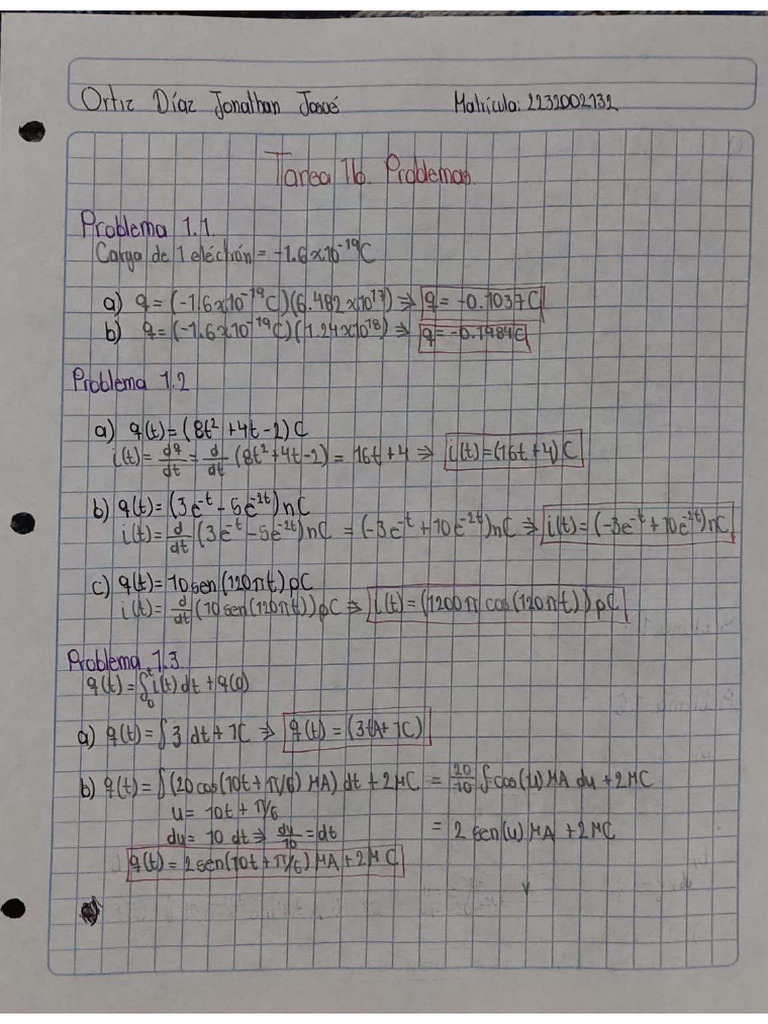 Ortiz Díaz Jonathan Josué Matrícula: 2232002132
Tarea 1b. Problemas.
Problema 1.1.
Carga de 1 eléctrón = -1.6x10⁻¹⁹C
a) q = (-1.6x10⁻¹⁹C)(6.482x10¹⁷) ⇒ q = -0.1037C
b) q = (-1.6x10⁻¹⁹C)(1.24x10¹⁸) ⇒ q = -0.1984C
Problema 1.2
a) q(t) = (8t² + 4t - 2) C
i(t) = dq/dt = d/dt (8t² + 4t - 2) = 16t + 4 ⇒ i(t) = (16t + 4) C
b) q(t) = (3e⁻ᵗ - 5e⁻²ᵗ) nC
i(t) = d/dt (3e⁻ᵗ - 5e⁻²ᵗ) nC = (-3e⁻ᵗ + 10e⁻²ᵗ) nC ⇒ i(t) = (-3e⁻ᵗ + 10e⁻²ᵗ) nC
c) q(t) = 10 sen(120πt) pC
i(t) = d/dt (10 sen(120πt)) pC ⇒ i(t) = (1200π cos(120πt)) pC
Problema 1.3
q(t) = ∫₀ᵗ i(t) dt + q(0)
a) q(t) = ∫ 3 dt + 1C ⇒ q(t) = (3tA + 1C)
b) q(t) = ∫(20 cos(10t + π/6) MA) dt + 2MC = 20/10 ∫ cos(u) MA du + 2MC
u = 10t + π/6
du = 10 dt ⇒ du/10 = dt = 2 sen(u) MA + 2MC
q(t) = 2 sen(10t + π/6) MA + 2MC